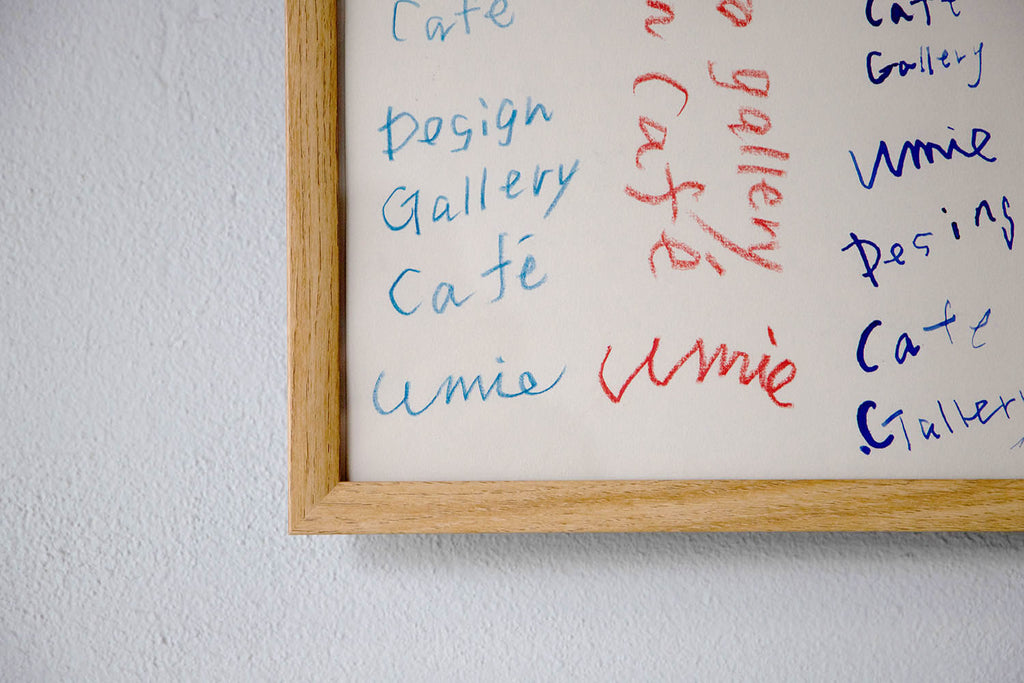 Café
Design
Gallery
Café
umie
n Café
o gallery
umie
Cafe
Gallery
umie
Desing
Cafe
Gallery